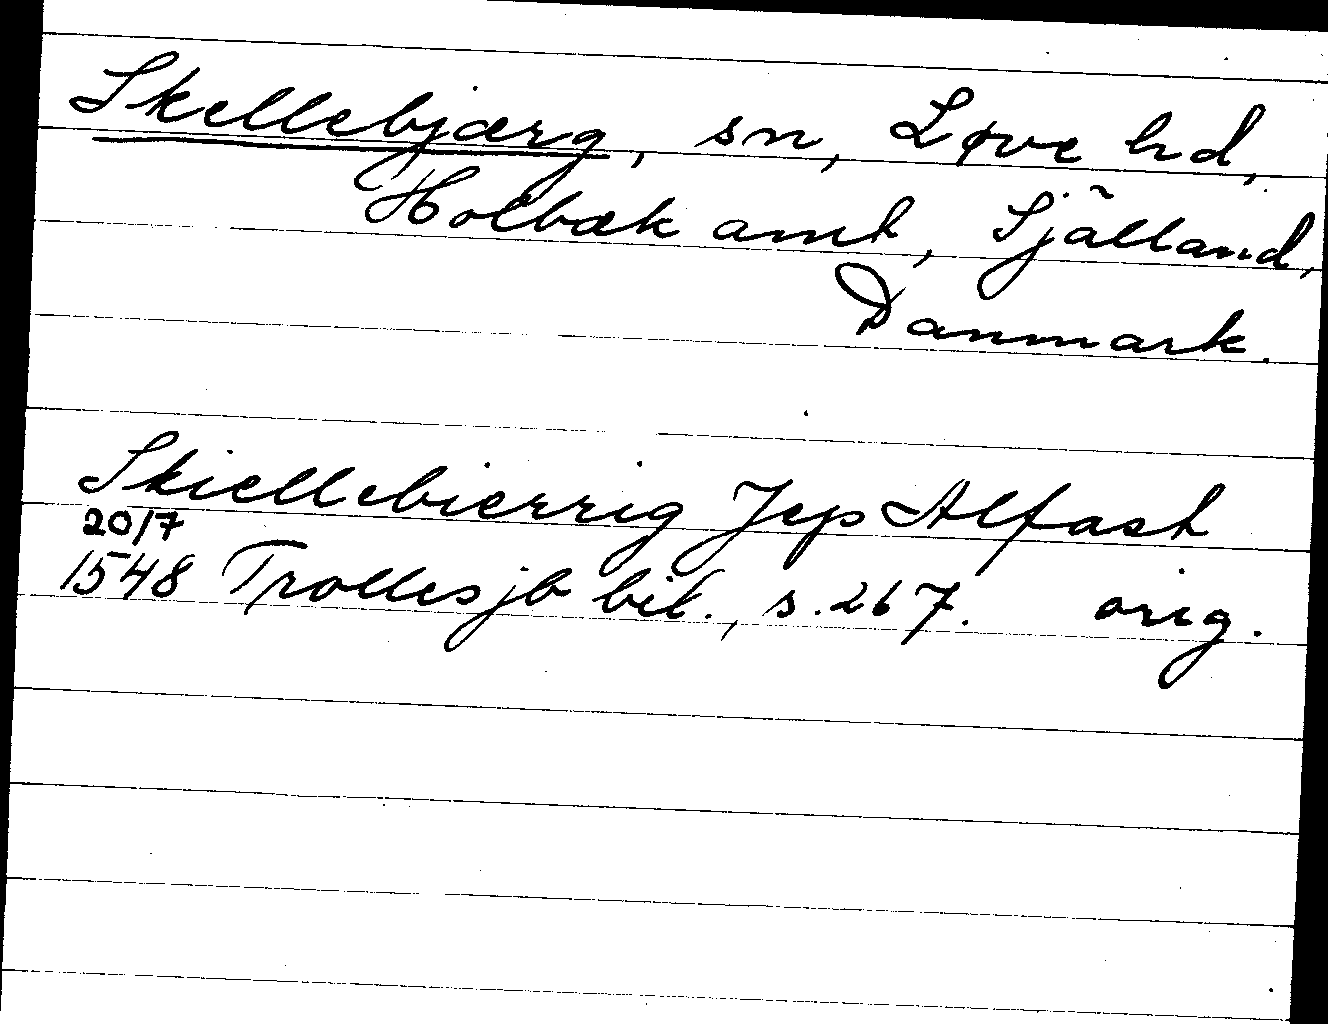 Skellebjærg, sn, Løve hd,
Holbæk amt, Själland,
Danmark.
Skiellebierrig Jep Alfast
20/7
1548 Trolles jb bil., s. 267. orig.